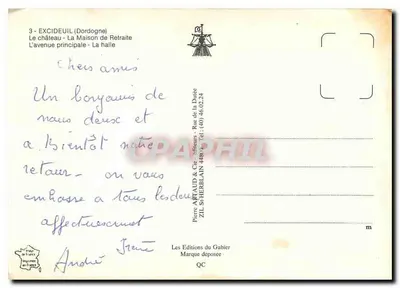 3 - EXCIDEUIL (Dordogne)
Le château - La Maison de Retraite
L'avenue principale - La halle
Chers amis
Un bonjour de
nous deux et
a Bientôt notre
retour - on vous
embrasse a tous les deux
affectueusement
André Irène
Pierre ARTAUD & Cie - Rue de la Durée
ZIL St HERBLAIN Tel: (40) 46.02.24
Les Editions du Gabier
Marque déposée
QC
m
CARTEPOSTALE-PHILATELIE